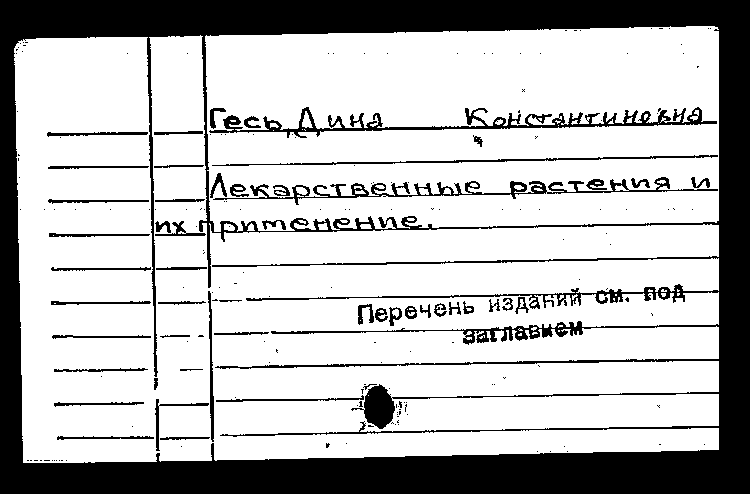 Гесь, Дина Константиновна
Лекарственные растения и
их применение.
Перечень изданий см. под
заглавием